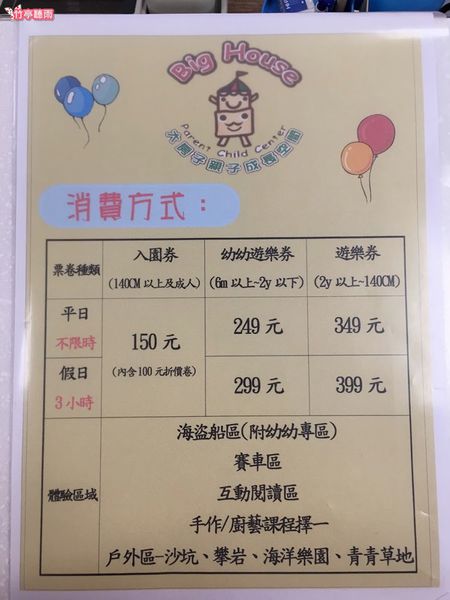 竹亭聽雨
Big House
Parent Child Center
大房子親子成長空間
消費方式：
票卷種類
入園券
(140CM以上及成人)
幼幼遊樂券
(6m以上~2y以下)
遊樂券
(2y以上~140CM)
平日
不限時
150元
(內含100元折價卷)
249元
349元
假日
3小時
299元
399元
體驗區域
海盜船區(附幼幼專區)
賽車區
互動閱讀區
手作/廚藝課程擇一
戶外區-沙坑、攀岩、海洋樂園、青青草地